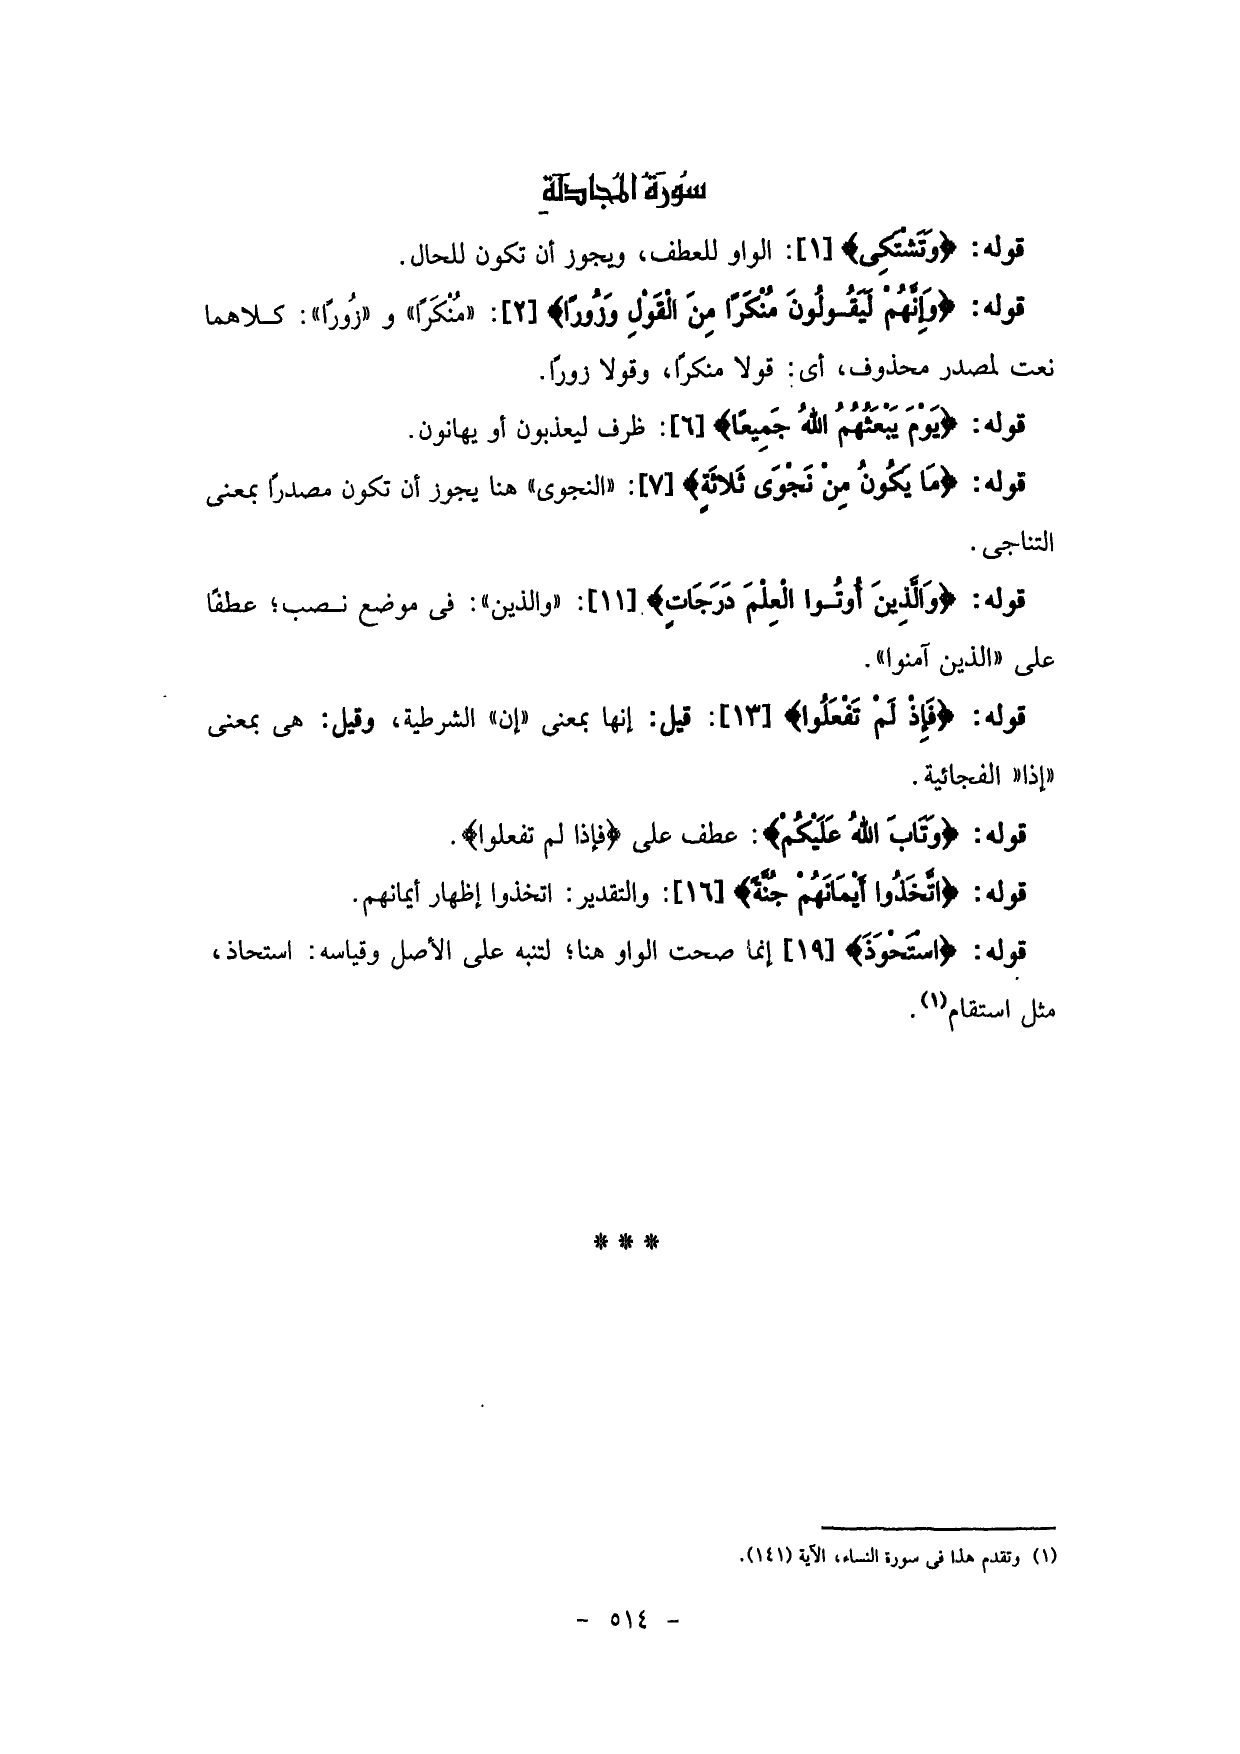 سُورَةُ المُجَادلَةِ
قوله: ﴿وَتَشْتَكِى﴾ [١]: الواو للعطف، ويجوز أن تكون للحال.
قوله: ﴿وَإِنَّهُمْ لَيَقُـولُونَ مُنْكَرًا مِنَ الْقَوْلِ وَزُورًا﴾ [٢]: «مُنْكَرًا» و «زُورًا»: كـلاهما
نعت لمصدر محذوف، أى: قولا منكرًا، وقولا زورًا.
قوله: ﴿يَوْمَ يَبْعَثُهُمُ اللهُ جَمِيعًا﴾ [٦]: ظرف ليعذبون أو يهانون.
قوله: ﴿مَا يَكُونُ مِنْ نَجْوَى ثَلاثَةٍ﴾ [٧]: «النجوى» هنا يجوز أن تكون مصدرًا بمعنى
التناجى.
قوله: ﴿وَالَّذِينَ أُوتُـوا الْعِلْمَ دَرَجَاتٍ﴾ [١١]: «والذين»: فى موضع نـصب؛ عطفًا
على «الذين آمنوا».
قوله: ﴿فَإِذْ لَمْ تَفْعَلُوا﴾ [١٣]: قيل: إنها بمعنى «إن» الشرطية، وقيل: هى بمعنى
«إذا« الفجائية.
قوله: ﴿وَتَابَ اللهُ عَلَيْكُمْ﴾: عطف على ﴿فإذا لم تفعلوا﴾.
قوله: ﴿اتَّخَذُوا أَيْمَانَهُمْ جُنَّةً﴾ [١٦]: والتقدير: اتخذوا إظهار أيمانهم.
قوله: ﴿اسْتَحْوَذَ﴾ [١٩] إنما صحت الواو هنا؛ لتنبه على الأصل وقياسه: استحاذ،
مثل استقام(١).
* * *
(١) وتقدم هذا فى سورة النساء، الآية (١٤١).
- ٥١٤ -